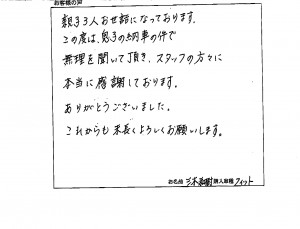 お客様の声
親子3人お世話になっております。
この度は、息子の納車の件で
無理を聞いて頂き、スタッフの方々に
本当に感謝しております。
ありがとうございました。
これからも末長くよろしくお願いします。
お名前 購入車種 フィット